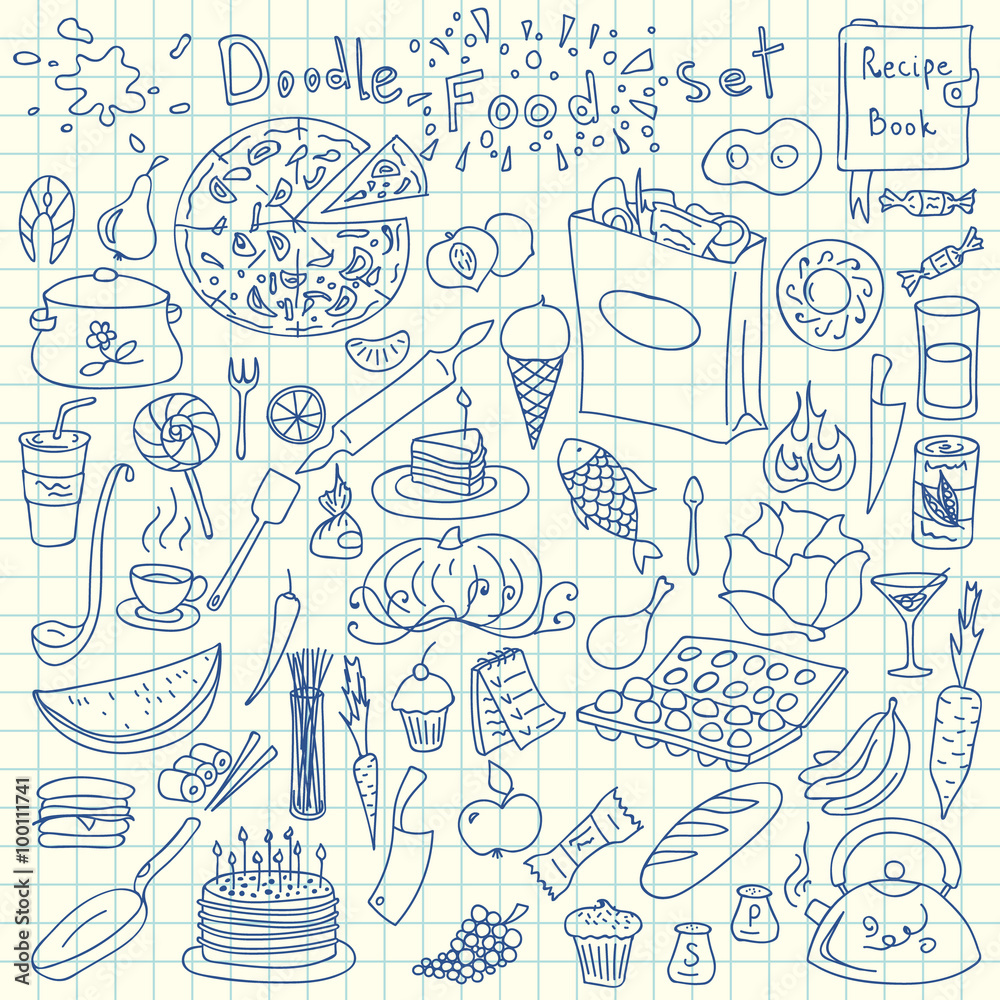 Doodle Food Set
Recipe
Book
P
S
Adobe Stock | #100111741